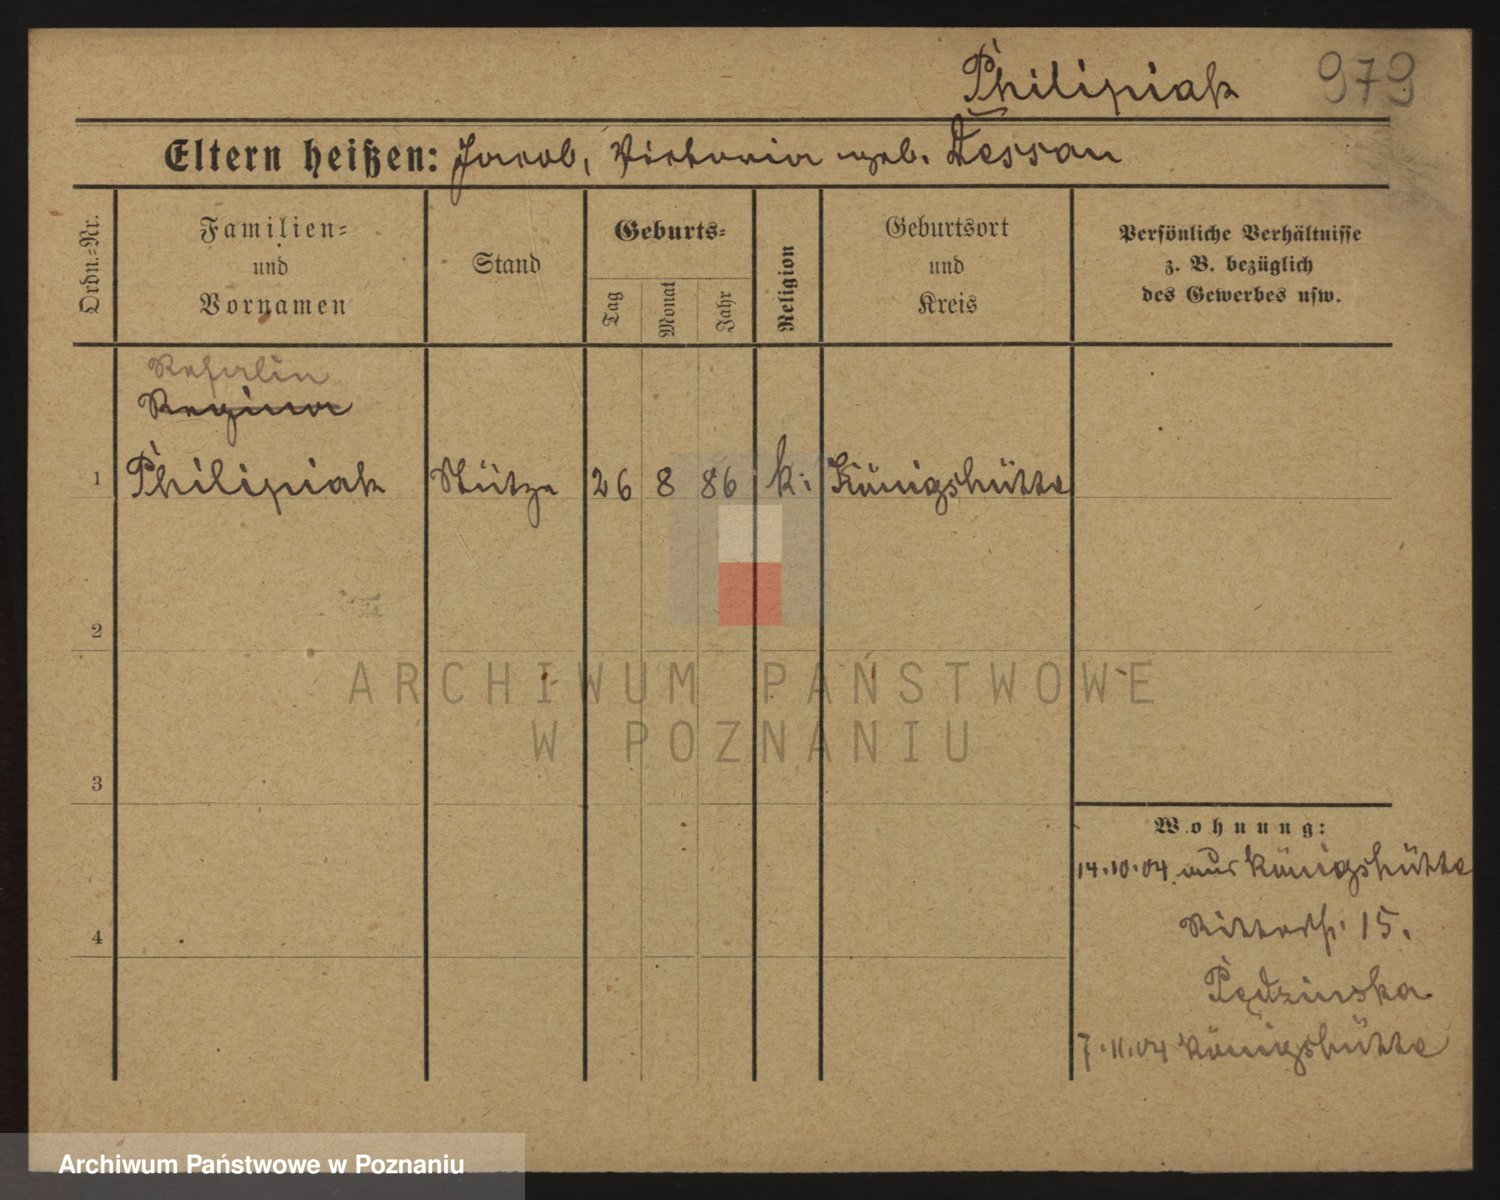 Philipiak 979
Eltern heißen: Jacob, Victoria geb. Dessau
Ordn.=Nr.
Familien=
und
Vornamen
Stand
Geburts=
Tag
Monat
Jahr
Religion
Geburtsort
und
Kreis
Persönliche Verhältnisse
z. B. bezüglich
des Gewerbes usw.
Regina
1 Philipiak Stütze 26 8 86 k. Königshütte
2
3
4
Wohnung:
14.10.04 aus Königshütte
Ritterstr. 15.
Pędzinska
7.11.04 Königshütte
ARCHIWUM PAŃSTWOWE
W POZNANIU
Archiwum Państwowe w Poznaniu